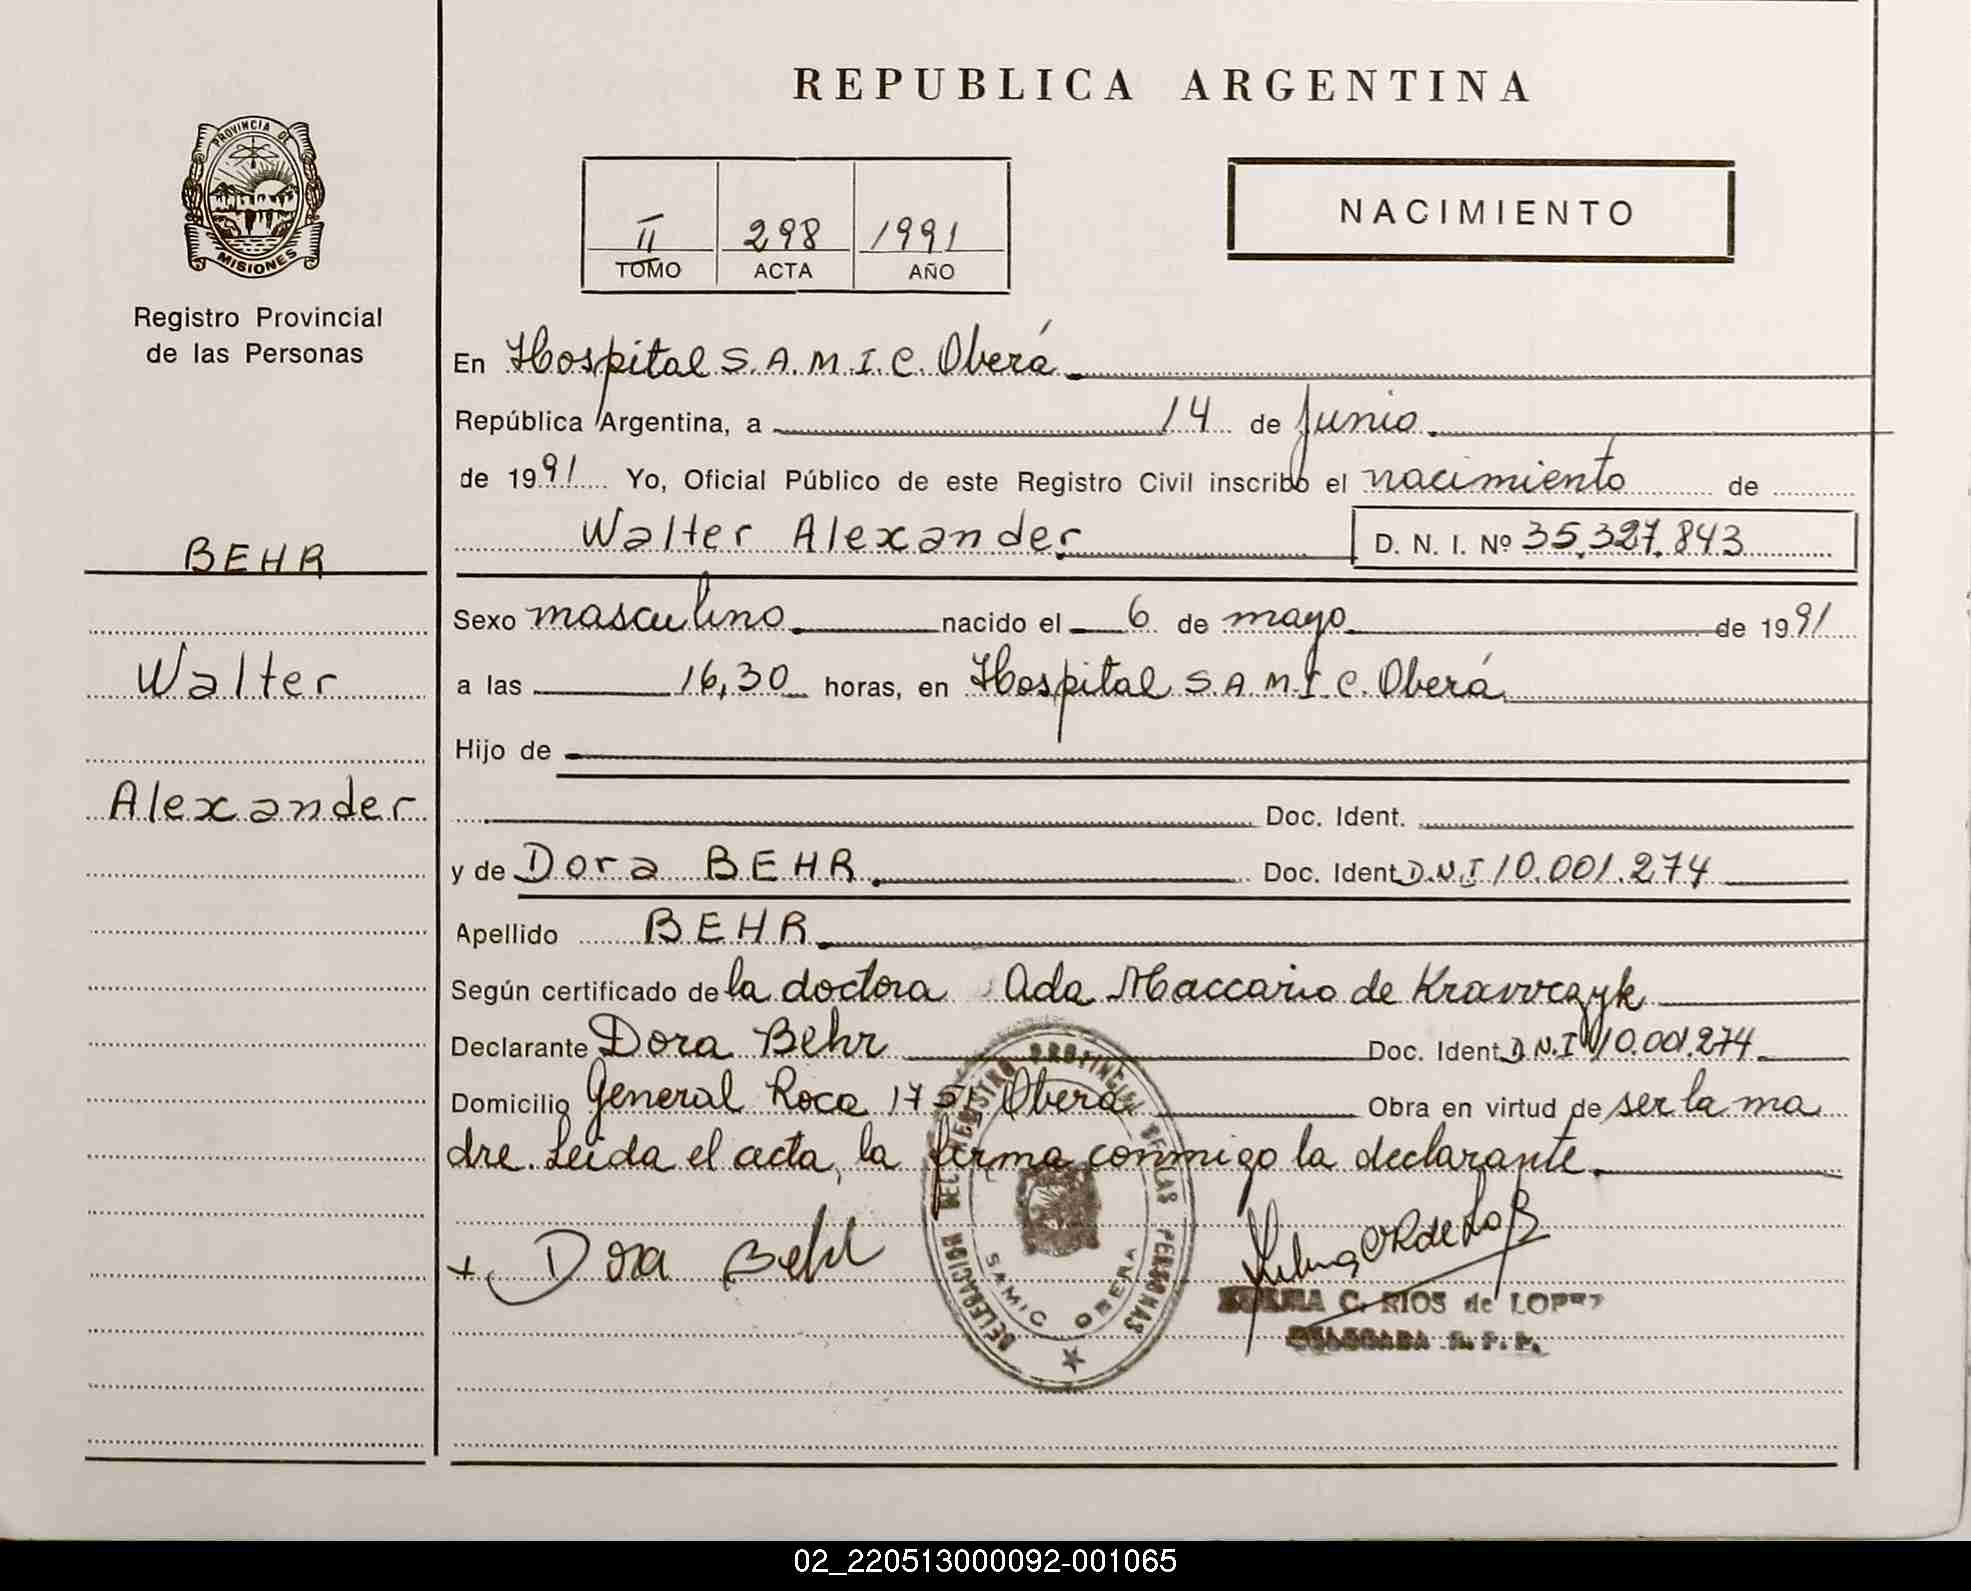 REPUBLICA ARGENTINA
PROVINCIA DE
MISIONES
Registro Provincial
de las Personas
II 298 1991
TOMO ACTA AÑO
NACIMIENTO
BEHR
Walter
Alexander
En Hospital S.A.M.I.C. Oberá
República Argentina, a 14 de junio
de 1991 Yo, Oficial Público de este Registro Civil inscribo el nacimiento de
Walter Alexander D. N. I. Nº 35.327.843
Sexo masculino nacido el 6 de mayo de 1991
a las 16,30 horas, en Hospital S.A.M.I.C. Oberá
Hijo de
Doc. Ident.
y de Dora BEHR Doc. Ident. D.N.I 10.001.274
Apellido BEHR
Según certificado de la doctora Ada Maccario de Kravvczyk
Declarante Dora Behr Doc. Ident. D.N.I 10.001.274
Domicilio General Roca 1751 Oberá Obra en virtud de ser la ma
dre. Leida el acta, la firma conmigo la declarante
+ Dora Behr
DELEGACION DEL REGISTRO PROVINCIAL DE LAS PERSONAS
SAMIC OBERA
C. RIOS de LOPEZ
DELEGADA R. P. P.
02_220513000092-001065